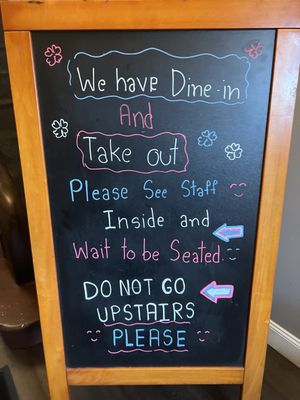 We have Dine-in
And
Take out
Please See Staff
Inside and
Wait to be Seated.
DO NOT GO
UPSTAIRS
PLEASE